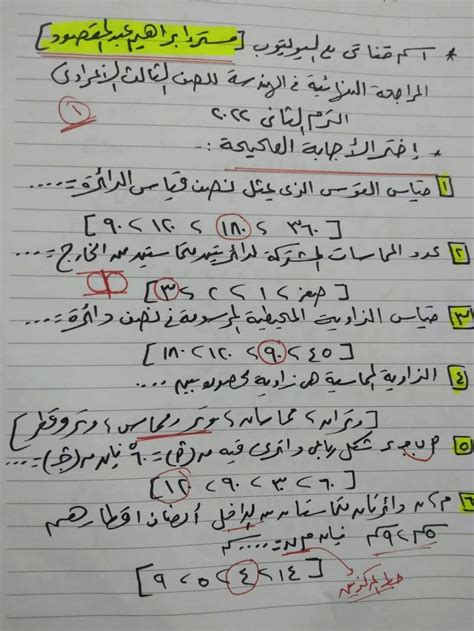 * اسم قناتى على اليوتيوب [مستر/ ابراهيم عبدالمقصود]
المراجعة النهائية فى الهندسة للصف الثالث الإعدادى
الترم الثانى ٢٠٢٢
١
* إختر الأجابة الصحيحة :-
١ قياس القوس الذى يمثل نصف قياس الدائرة = ....
[٣٦٠ ، ١٨٠ ، ١٢٠ ، ٩٠]
٢ عدد المماسات المشتركة لدائرتين متماستين من الخارج = ....
[صفر ، ١ ، ٢ ، ٣]
٣ قياس الزاوية المحيطية المرسومة فى نصف دائرة = ....
[٤٥ ، ٩٠ ، ١٢٠ ، ١٨٠]
٤ الزاوية المماسية هى زاوية محصورة بين ....
[وتران ، مماسان ، وتر ومماس ، وتر وقطر]
٥ شكل رباعى دائرى فيه = ٦٠° فإن =
[٦٠ ، ٣٠ ، ٩٠ ، ١٢٠]
٦ م ، ن دائرتان متماستان من الداخل أنصاف اقطارهم
٥سم ، ٩سم فإن م ن = .... سم
[١٤ ، ٤ ، ٥ ، ٩]
خط المركزين